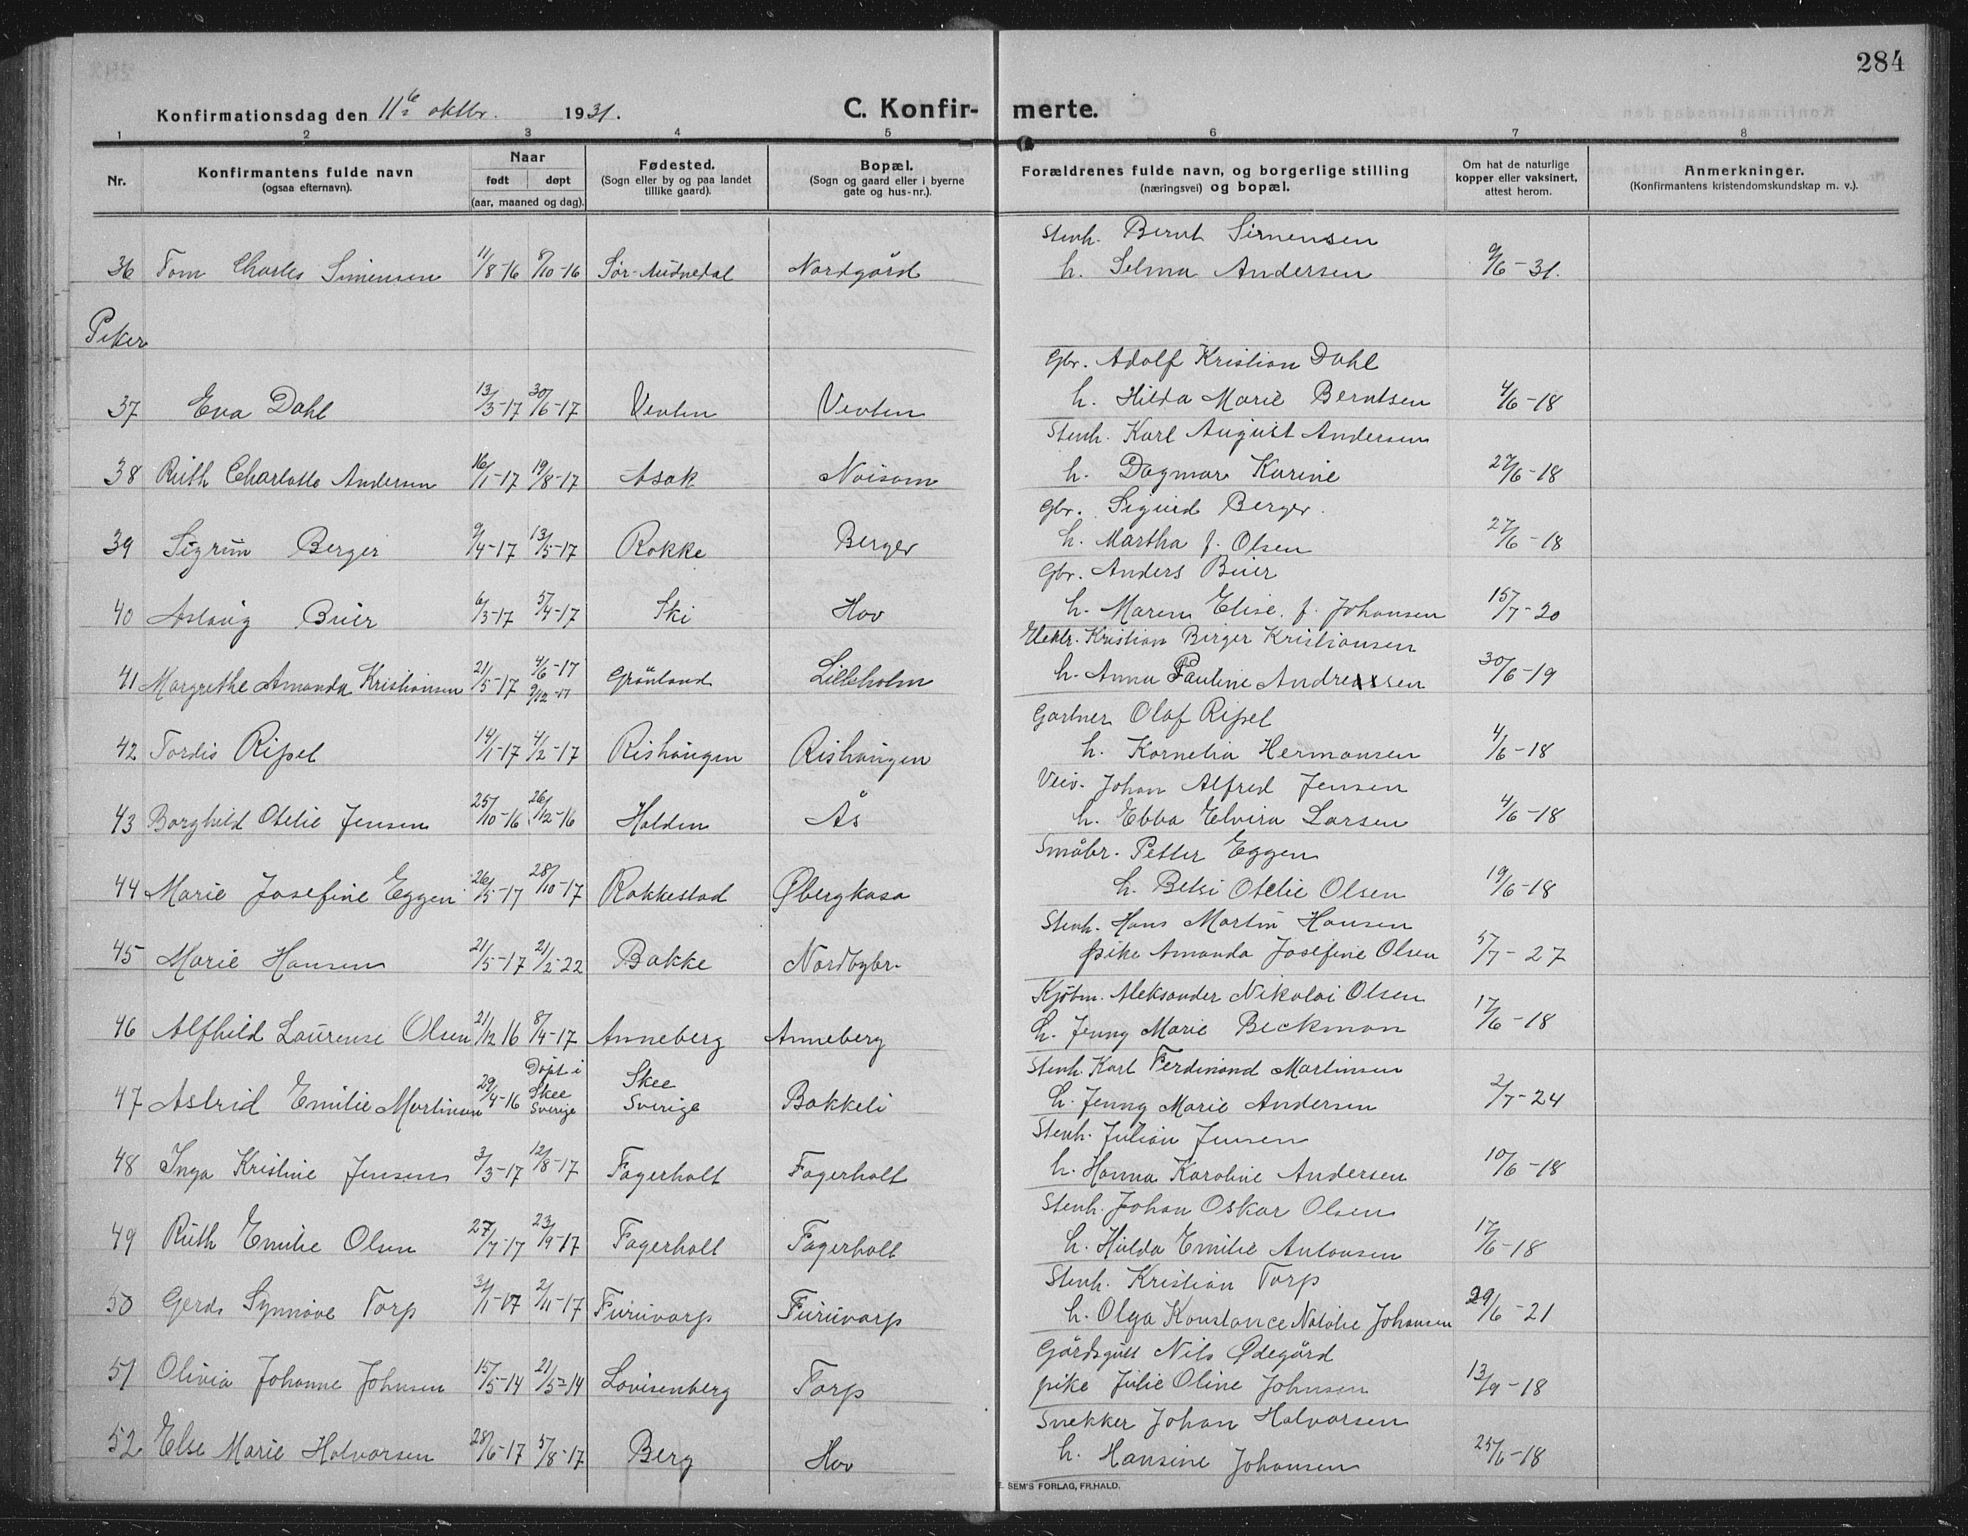 284
Konfirmationsdag den 11te oktbr. 1931. C. Konfir- merte.
1 2 3 4 5 6 7 8
Nr. Konfirmantens fulde navn (ogsaa efternavn). Naar født døpt (aar, maaned og dag). Fødested. (Sogn eller by og paa landet tillike gaard). Bopæl. (Sogn og gaard eller i byerne gate og hus-nr.). Forældrenes fulde navn, og borgerlige stilling (næringsvei) og bopæl. Om hat de naturlige kopper eller vaksinert, attest herom. Anmerkninger. (Konfirmantens kristendomskundskap m. v.).
Stenh. Bernt Simensen
36 Tom Charles Simensen 11/8-16 8/10-16 Sør-Audnedal Nordgård h. Selma Andersen 9/6-31.
Piker
Gbr. Adolf Kristian Dahl
37 Eva Dahl 13/3-17 30/6-17 Venten Venten h. Hilda Marie Berntsen 4/6-18
Stenh. Karl August Andersen
38 Ruth Charlotte Andersen 16/1-17 19/8-17 Asak Noisom h. Dagmar Karine 27/6-18
Gbr. Sigurd Berger.
39 Sigrun Berger 9/4-17 13/5-17 Rokke Berger h. Martha f. Olsen 27/6-18
Gbr. Anders Buer
40 Aslaug Buer 6/3-17 5/4-17 Ski Hov h. Maren Elise. f. Johansen 15/7-20
Elektr. Kristian Birger Kristiansen
41 Margrethe Amanda Kristiansen 21/5-17 4/6-17 9/12-17 Grønland Lilleholm h. Anna Pauline Andreassen 30/6-19
Gartner Olaf Ripel
42 Tordis Ripel 14/1-17 4/2-17 Rishaugen Rishaugen h. Kornelia Hermansen 4/6-18
Veiv. Johan Alfred Jensen
43 Borghild Otelie Jensen 25/10-16 26/12-16 Halden Ås h. Ebba Elvira Larsen 4/6-18
Småbr. Petter Eggen
44 Marie Josefine Eggen 26/5-17 28/10-17 Rakkestad Øbergkasa h. Betsi Otelie Olsen 19/6-18
Stenh. Hans Martin Hansen
45 Marie Hansen 21/5-17 21/2-22 Bakke Nordbybr. pike Amanda Josefine Olsen 5/7-27
Kjøbm. Aleksander Nikolai Olsen
46 Alfhild Laurense Olsen 21/12 16 8/4-17 Anneberg Anneberg h. Jenny Marie Beckman 17/6-18
Stenh. Karl Ferdinand Martinsen
47 Astrid Emilie Martinsen 29/4-16 Døpt i Skee Sverige Skee Sverige Bakkeli h. Jenny Marie Andersen 2/7-24
Stenh. Julian Jensen
48 Inga Kristine Jensen 3/3-17 12/8-17 Fagerholt Fagerholt h. Hanna Karoline Andersen 10/6-18
Stenh. Johan Oskar Olsen
49 Ruth Emilie Olsen 27/7-17 23/9-17 Fagerholt Fagerholt h. Hulda Emilie Antonsen 17/6-18
Stenh. Kristian Torp
50 Gerds Synnøve Torp 31/1-17 2/11-17 Furuvarp Furuvarp h. Olga Konstance Natalie Johansen 29/6-21
Gårdsgutt Nils Ødegård
51 Olivia Johanne Johnsen 15/5-14 21/5-14 Lovisenberg Torp pike Julie Oline Johnsen 13/9-18
Snekker Johan Halvorsen
52 Else Marie Halvorsen 28/6-17 5/8-17 Berg Hov h. Hansine Johansen 25/6-18
E. SEM'S FORLAG, FR.HALD.